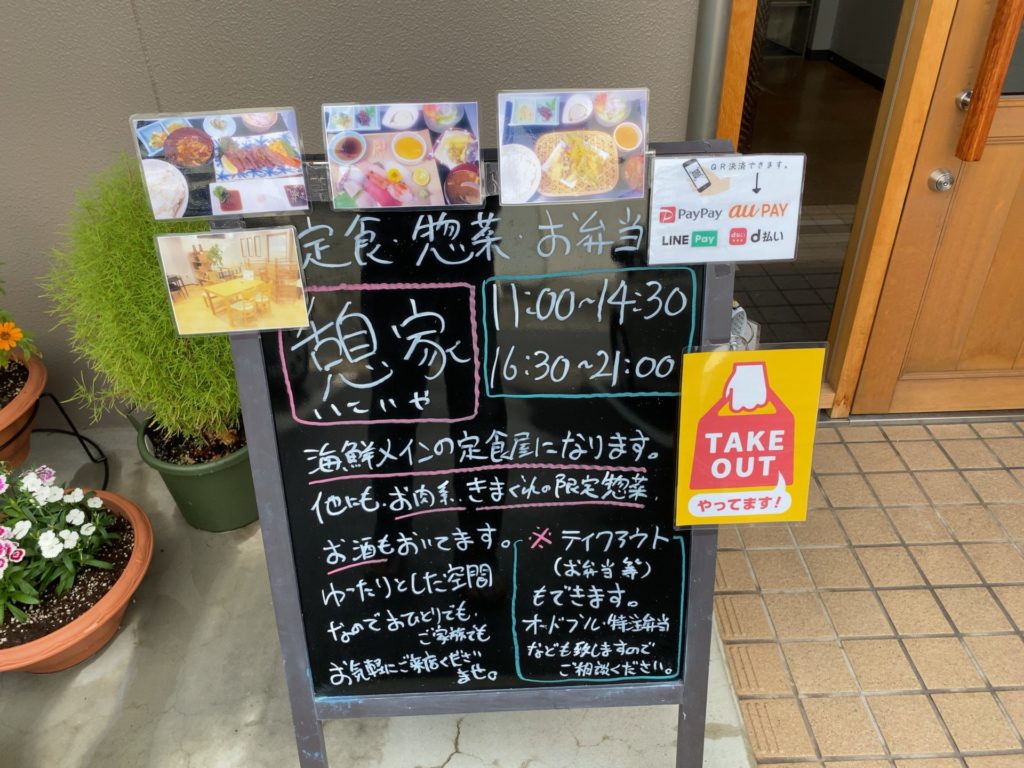 QR決済できます。
PayPay au PAY
LINE Pay d払い d払い
定食・惣菜・お弁当
憩家
いこいや
11:00～14:30
16:30～21:00
海鮮メインの定食屋になります。
他にも、お肉系、きまぐれの限定惣菜、
お酒もおいてます。
ゆったりとした空間
なのでおひとりでも、
ご家族でも
お気軽にご来店ください
ませ。
※テイクアウト
(お弁当等)
もできます。
オードブル・特注弁当
なども致しますので
ご相談ください。
TAKE
OUT
やってます!